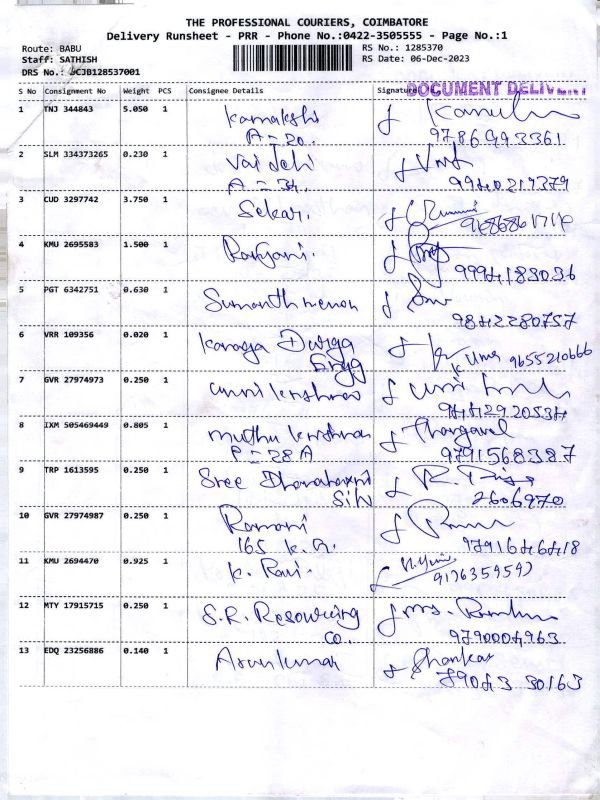 THE PROFESSIONAL COURIERS, COIMBATORE
Delivery Runsheet - PRR - Phone No.:0422-3505555 - Page No.:1
Route: BABU RS No.: 1285370
Staff: SATHISH RS Date: 06-Dec-2023
DRS No.: CJB128537001
DOCUMENT DELIVERY
S No Consignment No Weight PCS Consignee Details Signature
1 TNJ 344843 5.050 1 Kamakshi
A = 20. 9786993361
2 SLM 334373265 0.230 1 Vaidehi
A = 34. 9940219379
3 CUD 3297742 3.750 1 Sekar.
4 KMU 2695583 1.500 1 Ranjani.
9994183036
5 PGT 6342751 0.630 1 Sumanth menon
9842280757
6 VRR 109356 0.020 1 Durga
Engg K Uma 9655210666
7 GVR 27974973 0.250 1 Unnikrishnan Unni
9442920534
8 IXM 505469449 0.805 1 Muthu Krishnan Thangavel
P = 28A 9791568387
9 TRP 1613595 0.250 1 Sree
2606970
10 GVR 27974987 0.250 1 Ramani
165 K.R. 9791646418
11 KMU 2694470 0.925 1 K. Ravi.
12 MTY 17915715 0.250 1 S.R. Resourcing
CO. 9790004963
13 EDQ 23256886 0.140 1 Arunkumar Shankar
79043 30163